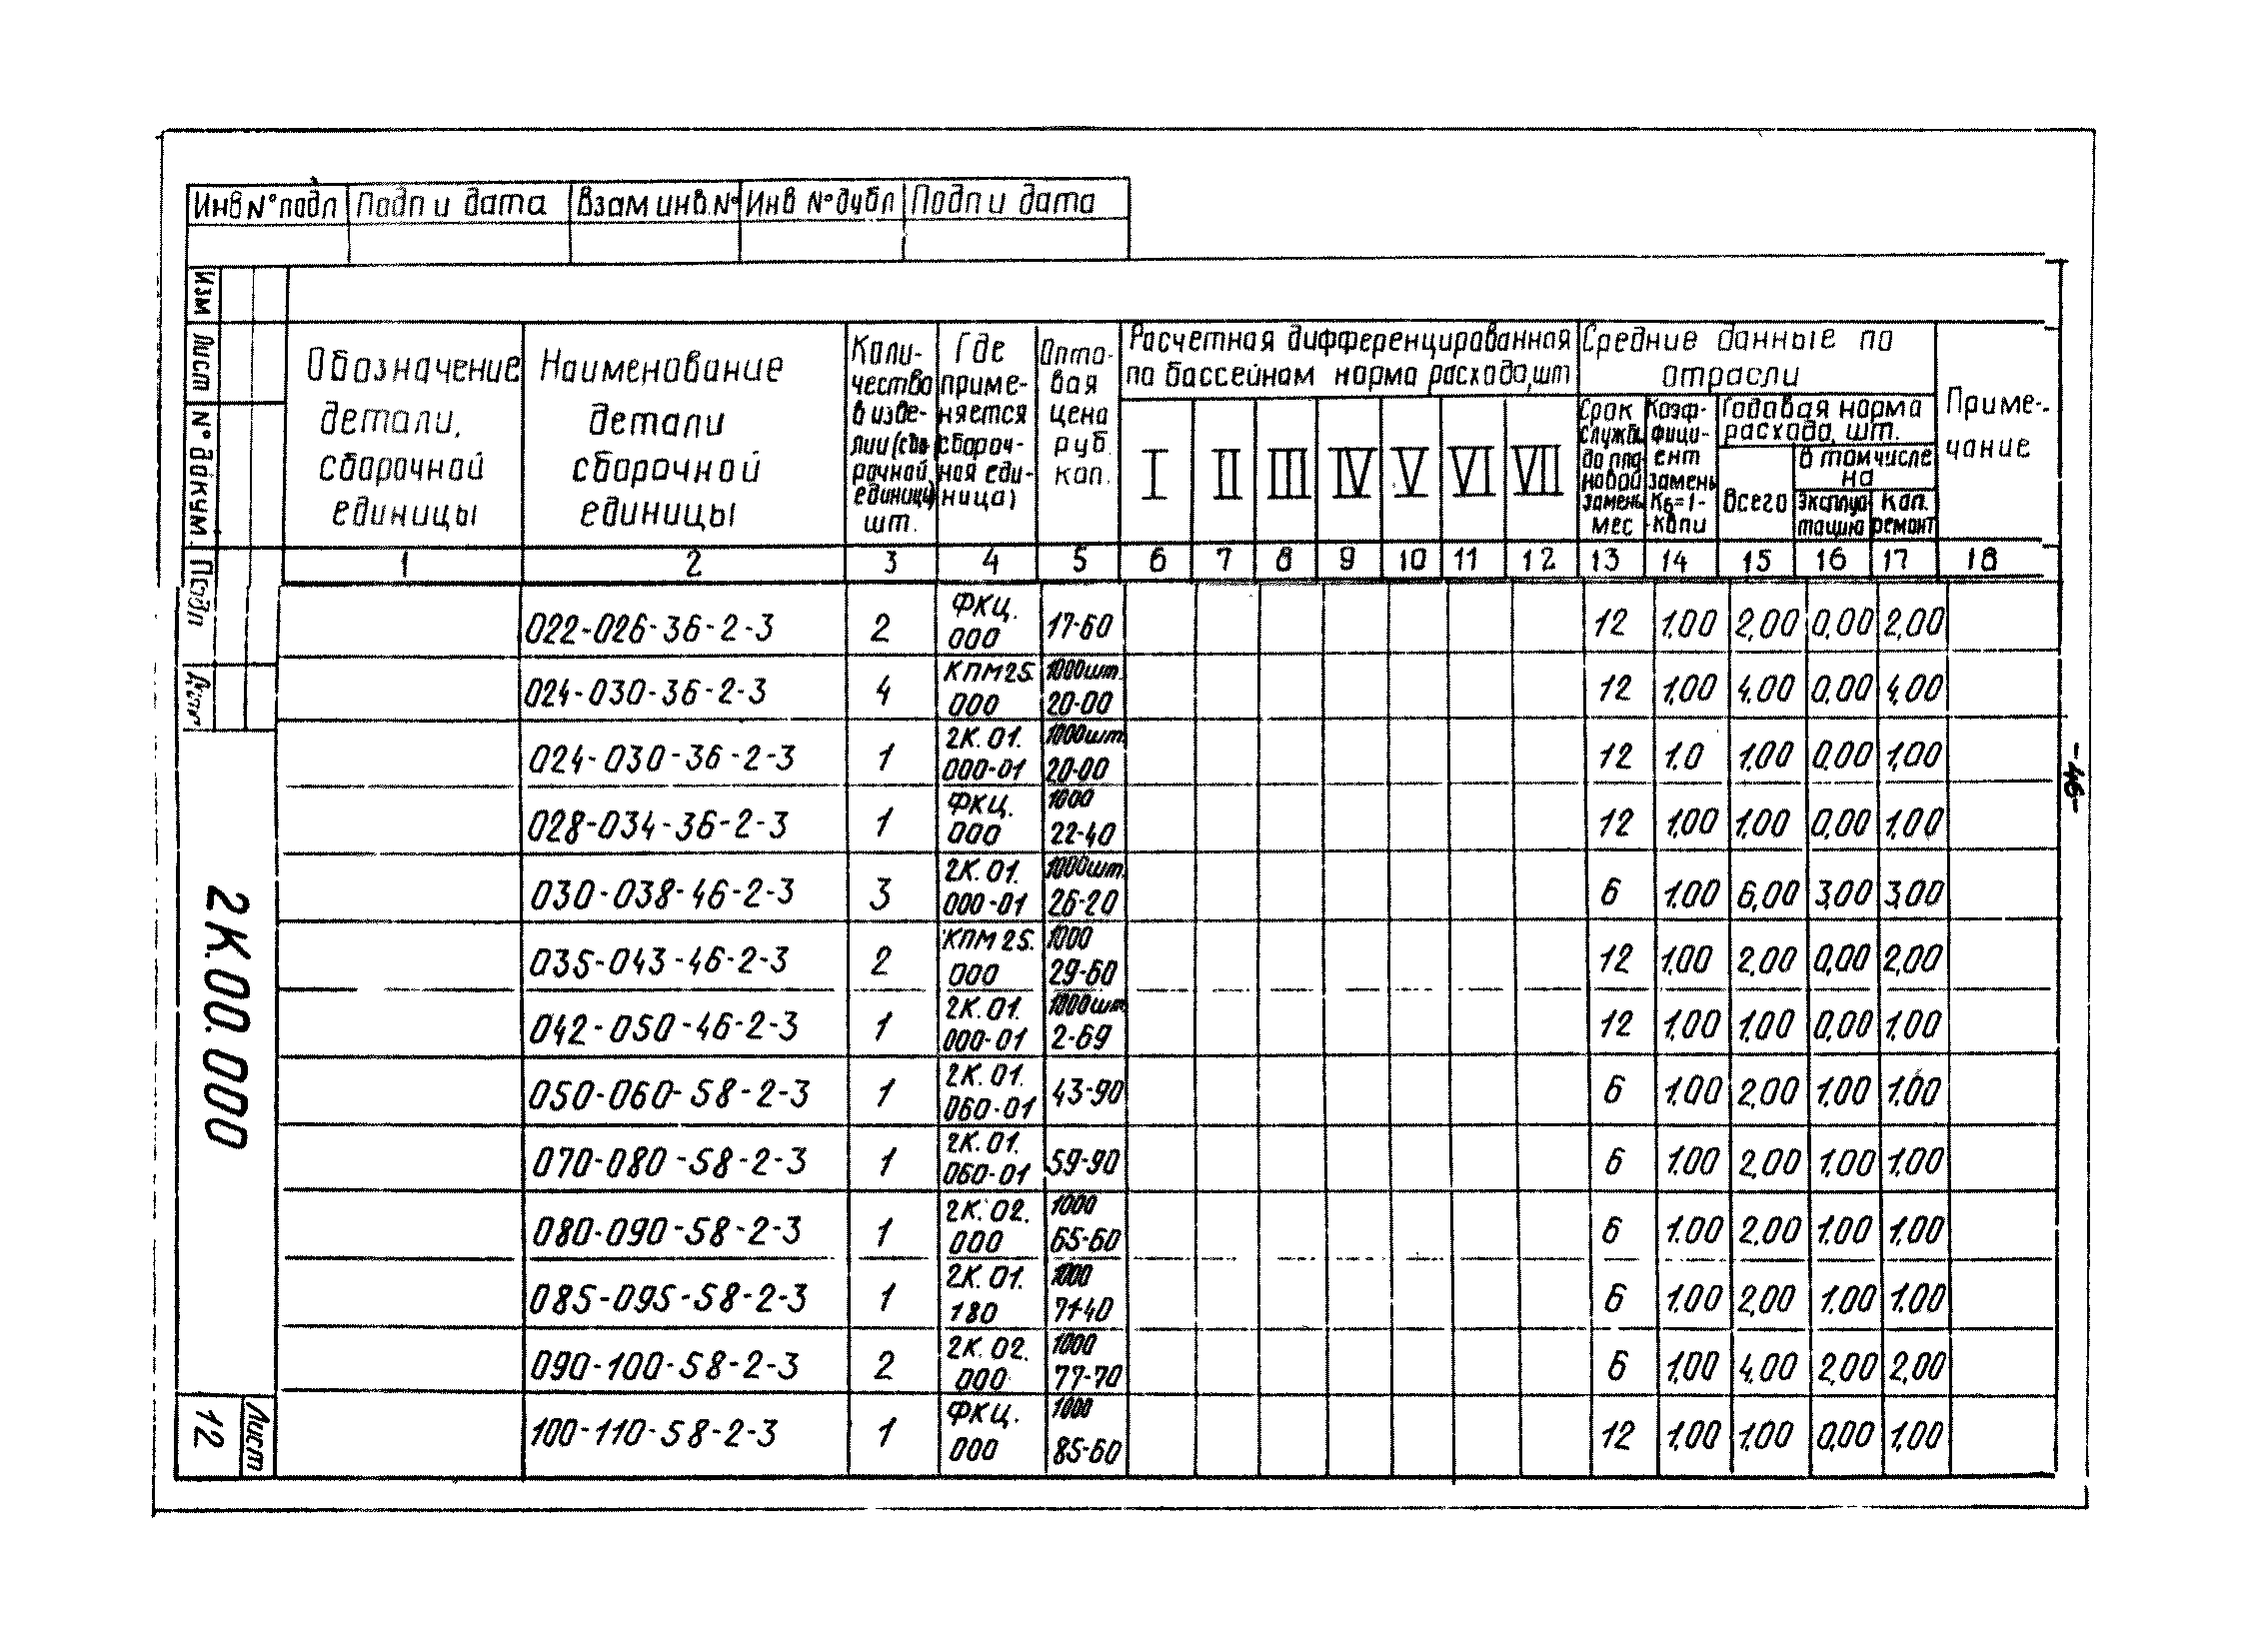 Инв N° подл Подп и дата Взам инв. N° Инв N° дубл Подп и дата
Изм Лист N° докум. Подп Дата
Обозначение детали, сборочной единицы
Наименование детали сборочной единицы
Коли-
чество
в изде-
лии (сбо
рочной
единице)
шт.
Где
приме-
няется
(сбороч-
ная еди-
ница)
Опто-
вая
цена
руб.
коп.
Расчетная дифференцированная
по бассейнам норма расхода, шт
I II III IV V VI VII
Средние данные по
отрасли
Срок
службы
до пла-
новой
замены
мес
Коэф-
фици-
ент
замены
Кб=1-
-Копи
Годовая норма
расхода, шт.
Всего
в том числе
на
Эксплуа-
тацию
Кап.
ремонт
Приме-
чание
1 2 3 4 5 6 7 8 9 10 11 12 13 14 15 16 17 18
022-026-36-2-3 2 ФКЦ. 000 17-60 12 1,00 2,00 0,00 2,00
024-030-36-2-3 4 КПМ25. 000 1000шт. 20-00 12 1,00 4,00 0,00 4,00
024-030-36-2-3 1 2К.01. 000-01 1000шт 20-00 12 1.0 1,00 0,00 1,00
028-034-36-2-3 1 ФКЦ. 000 1000 22-40 12 1,00 1,00 0,00 1,00
030-038-46-2-3 3 2К.01. 000-01 1000шт. 26-20 6 1,00 6,00 3,00 3,00
035-043-46-2-3 2 КПМ25. 000 1000 29-60 12 1,00 2,00 0,00 2,00
042-050-46-2-3 1 2К.01. 000-01 1000шт 2-69 12 1,00 1,00 0,00 1,00
050-060-58-2-3 1 2К.01. 060-01 43-90 6 1,00 2,00 1,00 1,00
070-080-58-2-3 1 2К.01. 060-01 59-90 6 1,00 2,00 1,00 1,00
080-090-58-2-3 1 2К.02. 000 1000 65-60 6 1,00 2,00 1,00 1,00
085-095-58-2-3 1 2К.01. 180 1000 71-40 6 1,00 2,00 1,00 1,00
090-100-58-2-3 2 2К.02. 000 1000 77-70 6 1,00 4,00 2,00 2,00
100-110-58-2-3 1 ФКЦ. 000 1000 85-60 12 1,00 1,00 0,00 1,00
2К.00.000
Лист
12
-46-